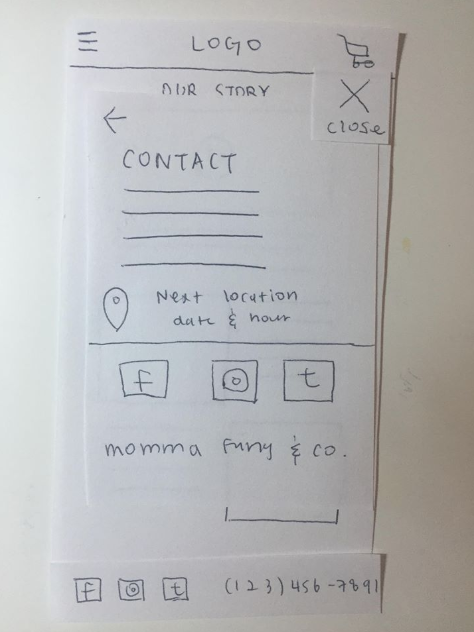 LOGO
OUR STORY
close
CONTACT
Next location
date & hour
f t
momma Fung & co.
f t (123)456-7891